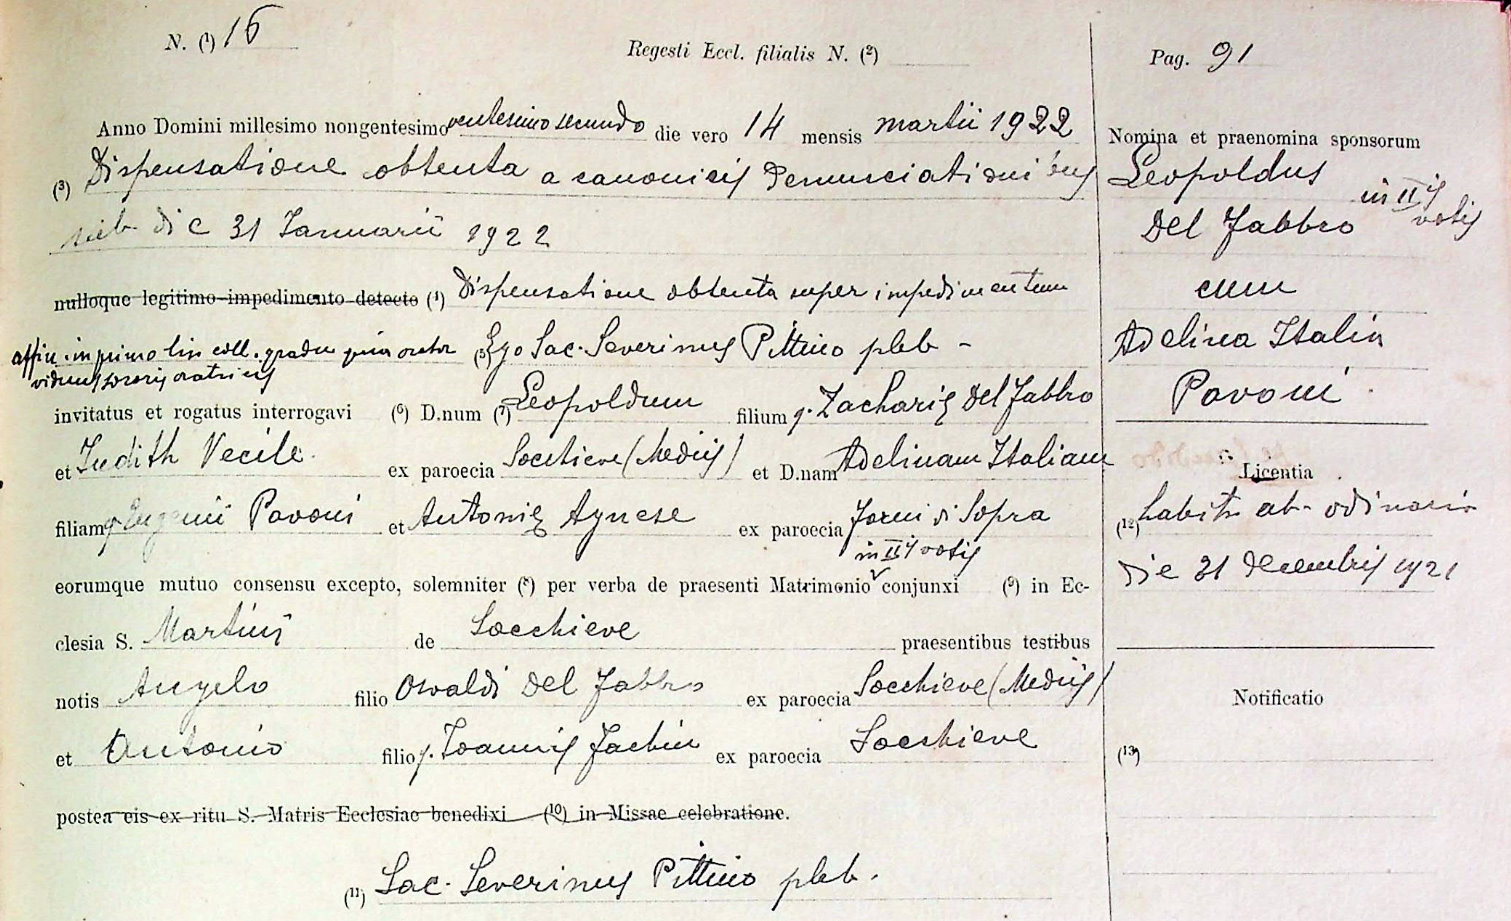 N. (¹) 16
Regesti Eccl. filialis N. (²)
Anno Domini millesimo nongentesimo ventesimo secundo die vero 14 mensis martii 1922
(³) Dispensatione obtenta a canonicis denunciationibus
sub die 31 Januarii 1922
nulloque legitimo impedimento detecto (⁴) Dispensatione obtenta super impedimentum
affin. in primo lin coll. gradu quia orator (⁵) Ego Sac. Severinus Pittino pleb -
viduus sororis oratricis
invitatus et rogatus interrogavi (⁶) D.num (⁷) Leopoldum filium q. Zacharię Del Fabbro
et Judith Vecile ex paroecia Socchieve (Mediis) et D.nam Adelinam Italiam
filiam q. Eugenii Pavoni et Antonię Agnese ex paroecia Forni di Sopra
in IIis votis
eorumque mutuo consensu excepto, solemniter (⁸) per verba de praesenti Matrimonio conjunxi (⁹) in Ec-
clesia S. Martini de Socchieve praesentibus testibus
notis Angelo filio Osvaldi Del Fabbro ex paroecia Socchieve (Mediis)
et Antonio filio q. Joannis Fachin ex paroecia Socchieve
postea eis ex ritu S. Matris Ecclesiae benedixi (¹⁰) in Missae celebratione.
(¹¹) Sac. Severinus Pittino pleb.
Pag. 91
Nomina et praenomina sponsorum
Leopoldus
in IIis votis
Del Fabbro
cum
Adelina Italia
Pavoni
Licentia
(¹²) habita ab odinario
die 31 Decembris 1921
Notificatio
(¹³)